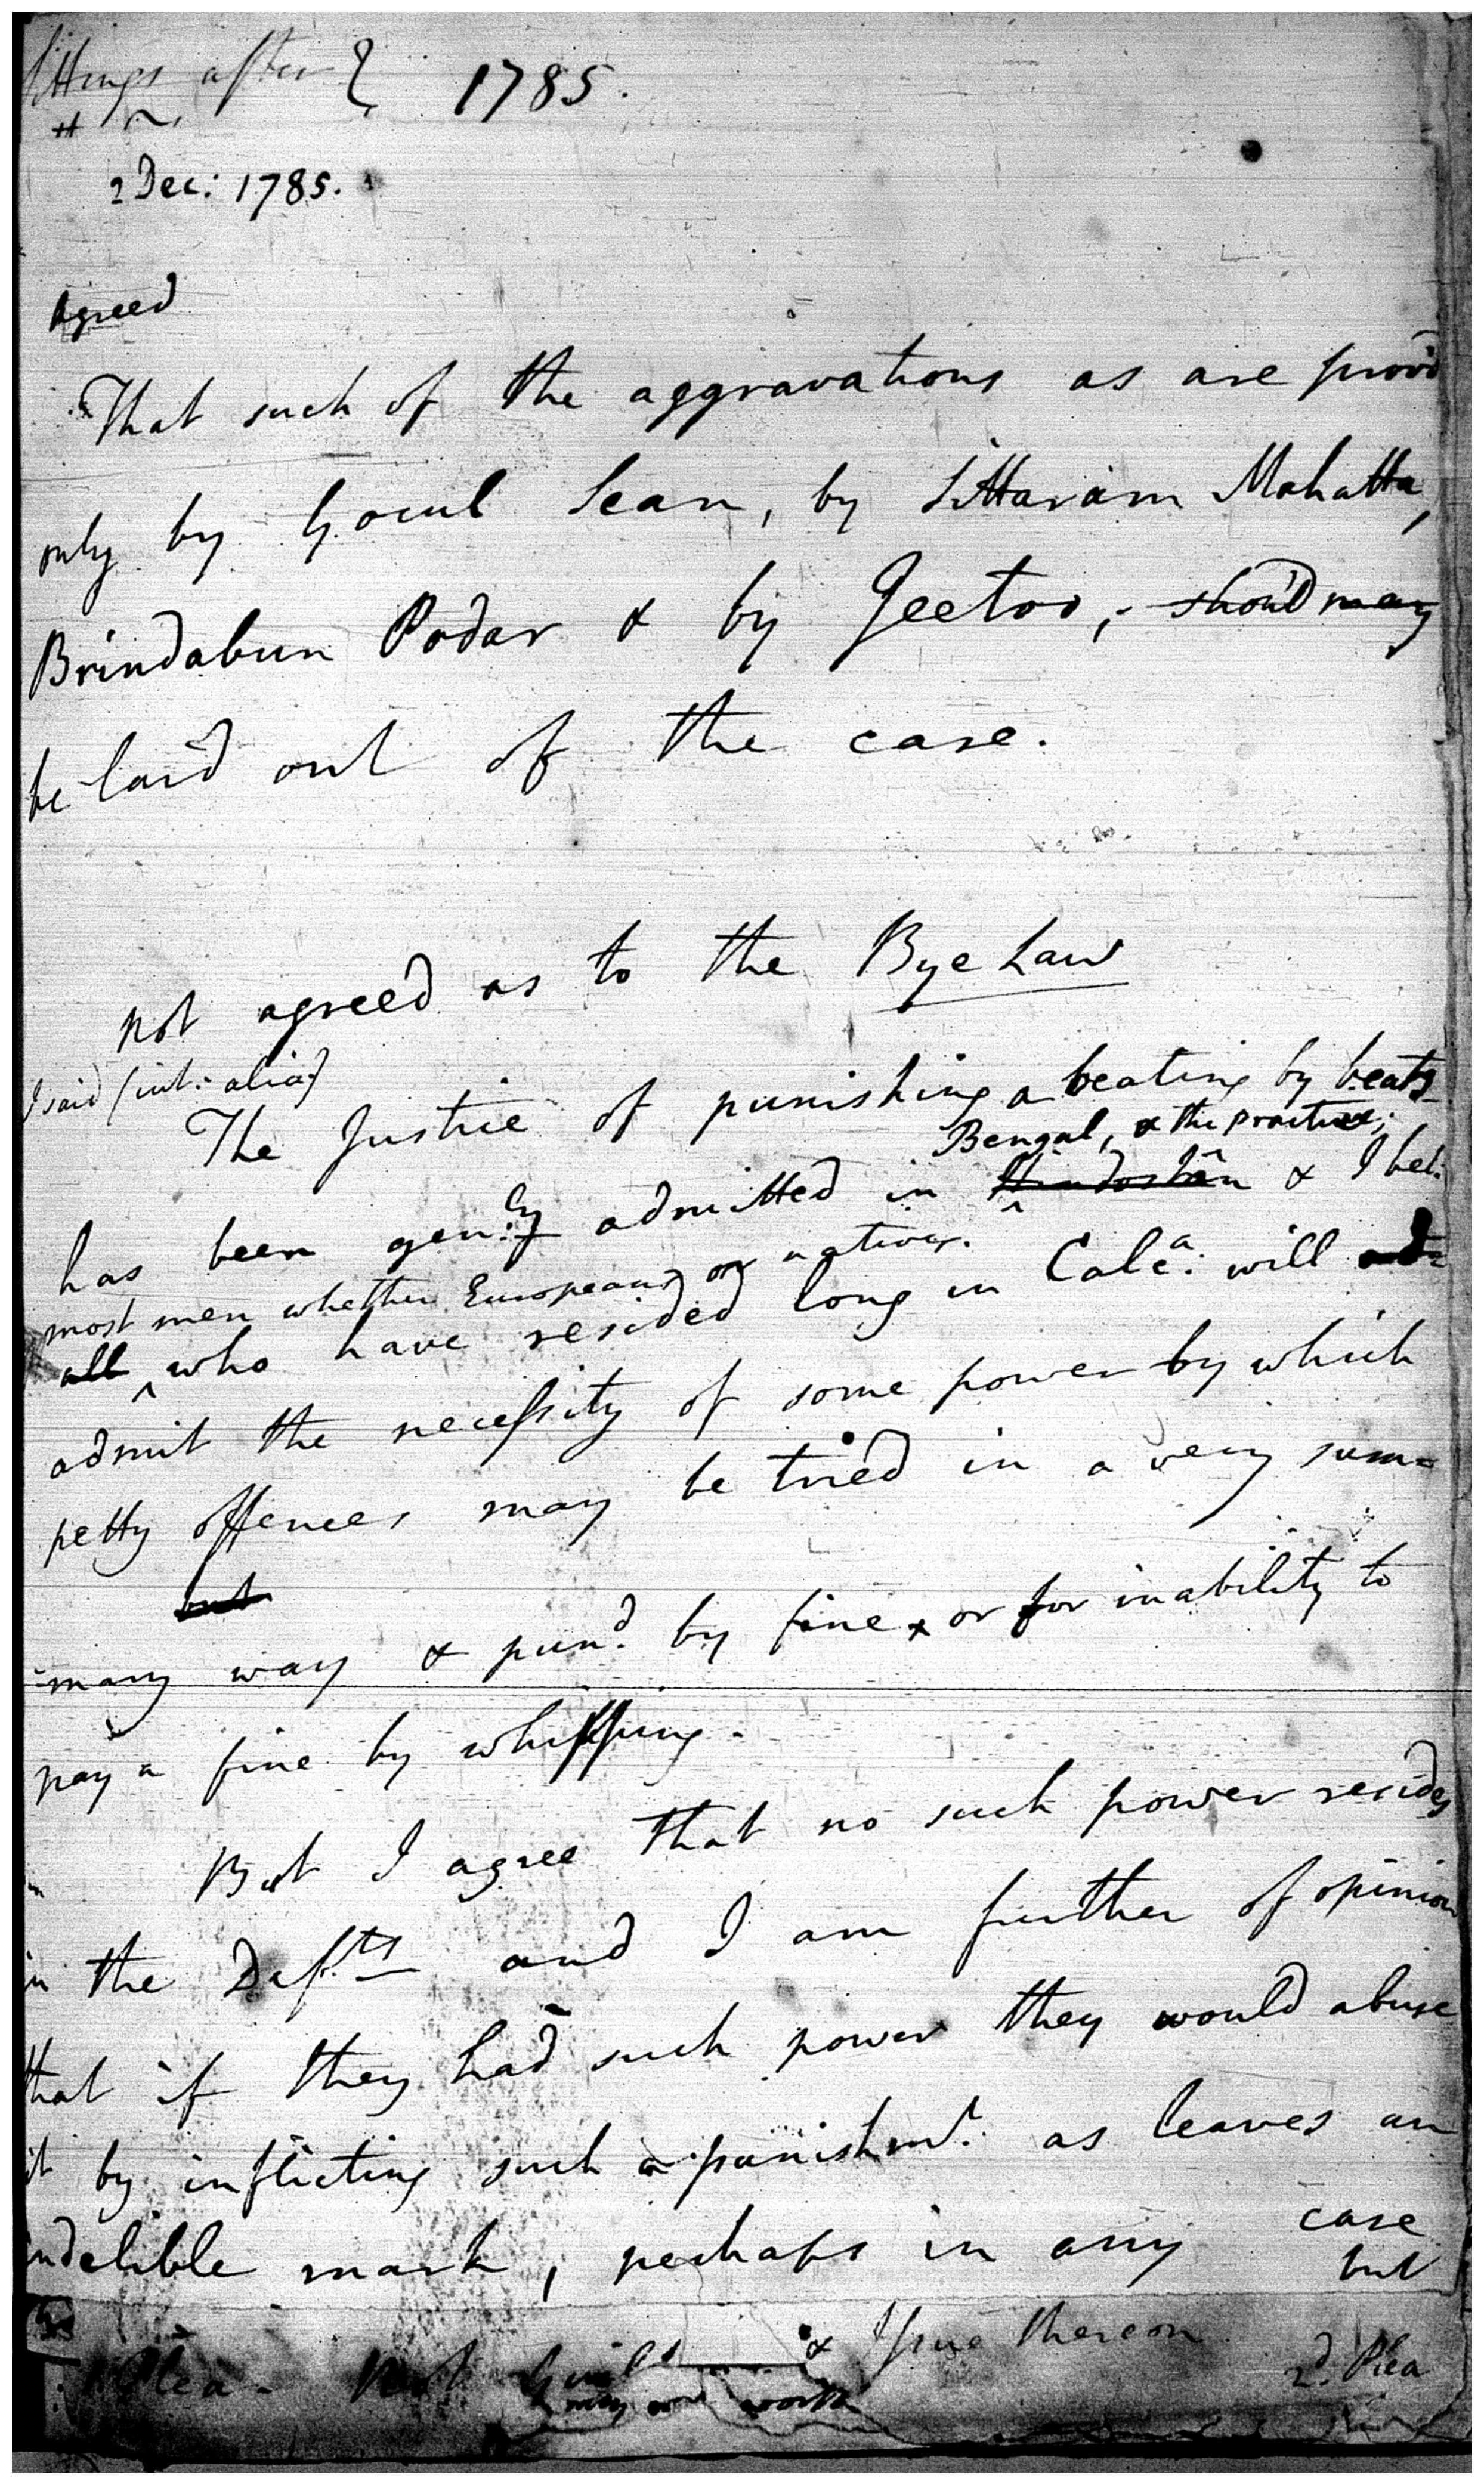 Sittings after } 1785.
2 Dec: 1785.
Agreed
That such of the aggravations as are prov'd
only by Gocul Sean, by Sittaram Mahatta,
Brindabun Podar & by Jeetoo, shou'd may
be laid out of the case.
not agreed as to the Bye Law
I said (int: alia)
The Justice of punishing a beating by beatg
Bengal, & the practice;
has been gen:ly admitted in Hindostan & I bel:
most men whether Europeans or natives.
all who have resided long in Calca. will ad=
admit the necessity of some power by which
petty offences may be tried in a very sum=
but
=mary way & pund. by fine, or for inability to
pay a fine by whipping.
But I agree that no such power resides
in the Defts and I am further of opinion
that if they had such power they would abuse
it by inflicting such a punishmt. as leaves an
indelible mark, perhaps in any case
but
Plea - Not Guilty & Issue thereon
2d. Plea